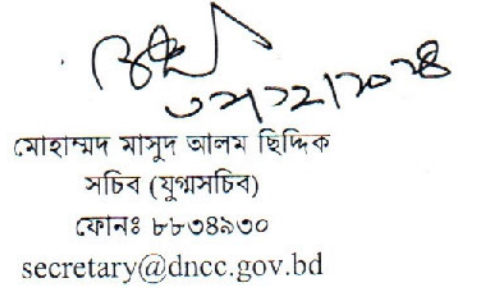 মোহাম্মদ মাসুদ আলম ছিদ্দিক
সচিব (যুগ্মসচিব)
ফোনঃ ৮৮৩৪৯৩০
secretary@dncc.gov.bd